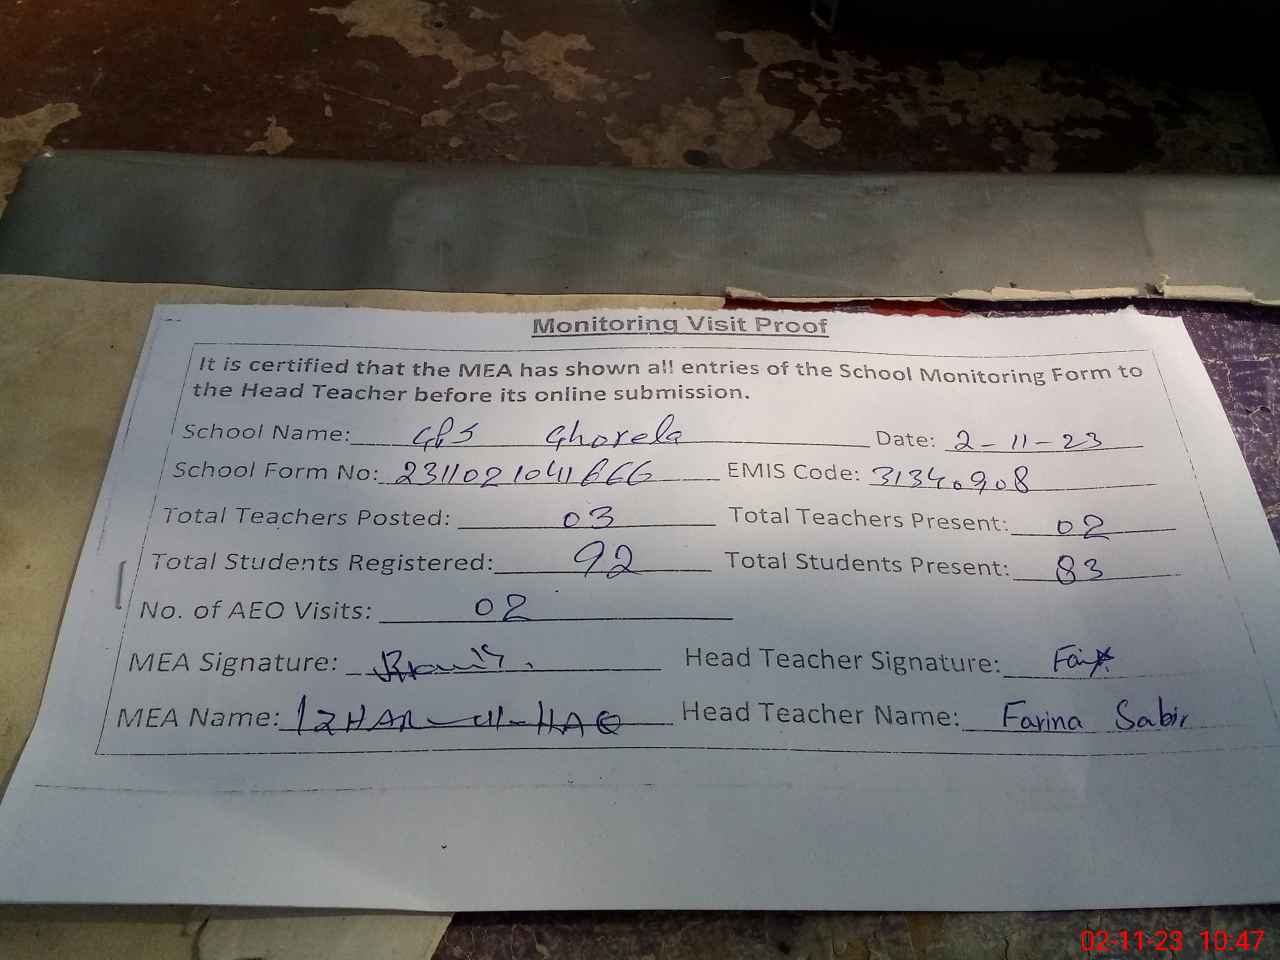 Monitoring Visit Proof
It is certified that the MEA has shown all entries of the School Monitoring Form to
the Head Teacher before its online submission.
School Name: GPS Ghorela Date: 2-11-23
School Form No: 2311021041666 EMIS Code: 31340908
Total Teachers Posted: 03 Total Teachers Present: 02
Total Students Registered: 92 Total Students Present: 83
No. of AEO Visits: 02
MEA Signature: Head Teacher Signature:
MEA Name: IZHAR-ul-HAQ Head Teacher Name: Farina Sabir
02-11-23 10:47